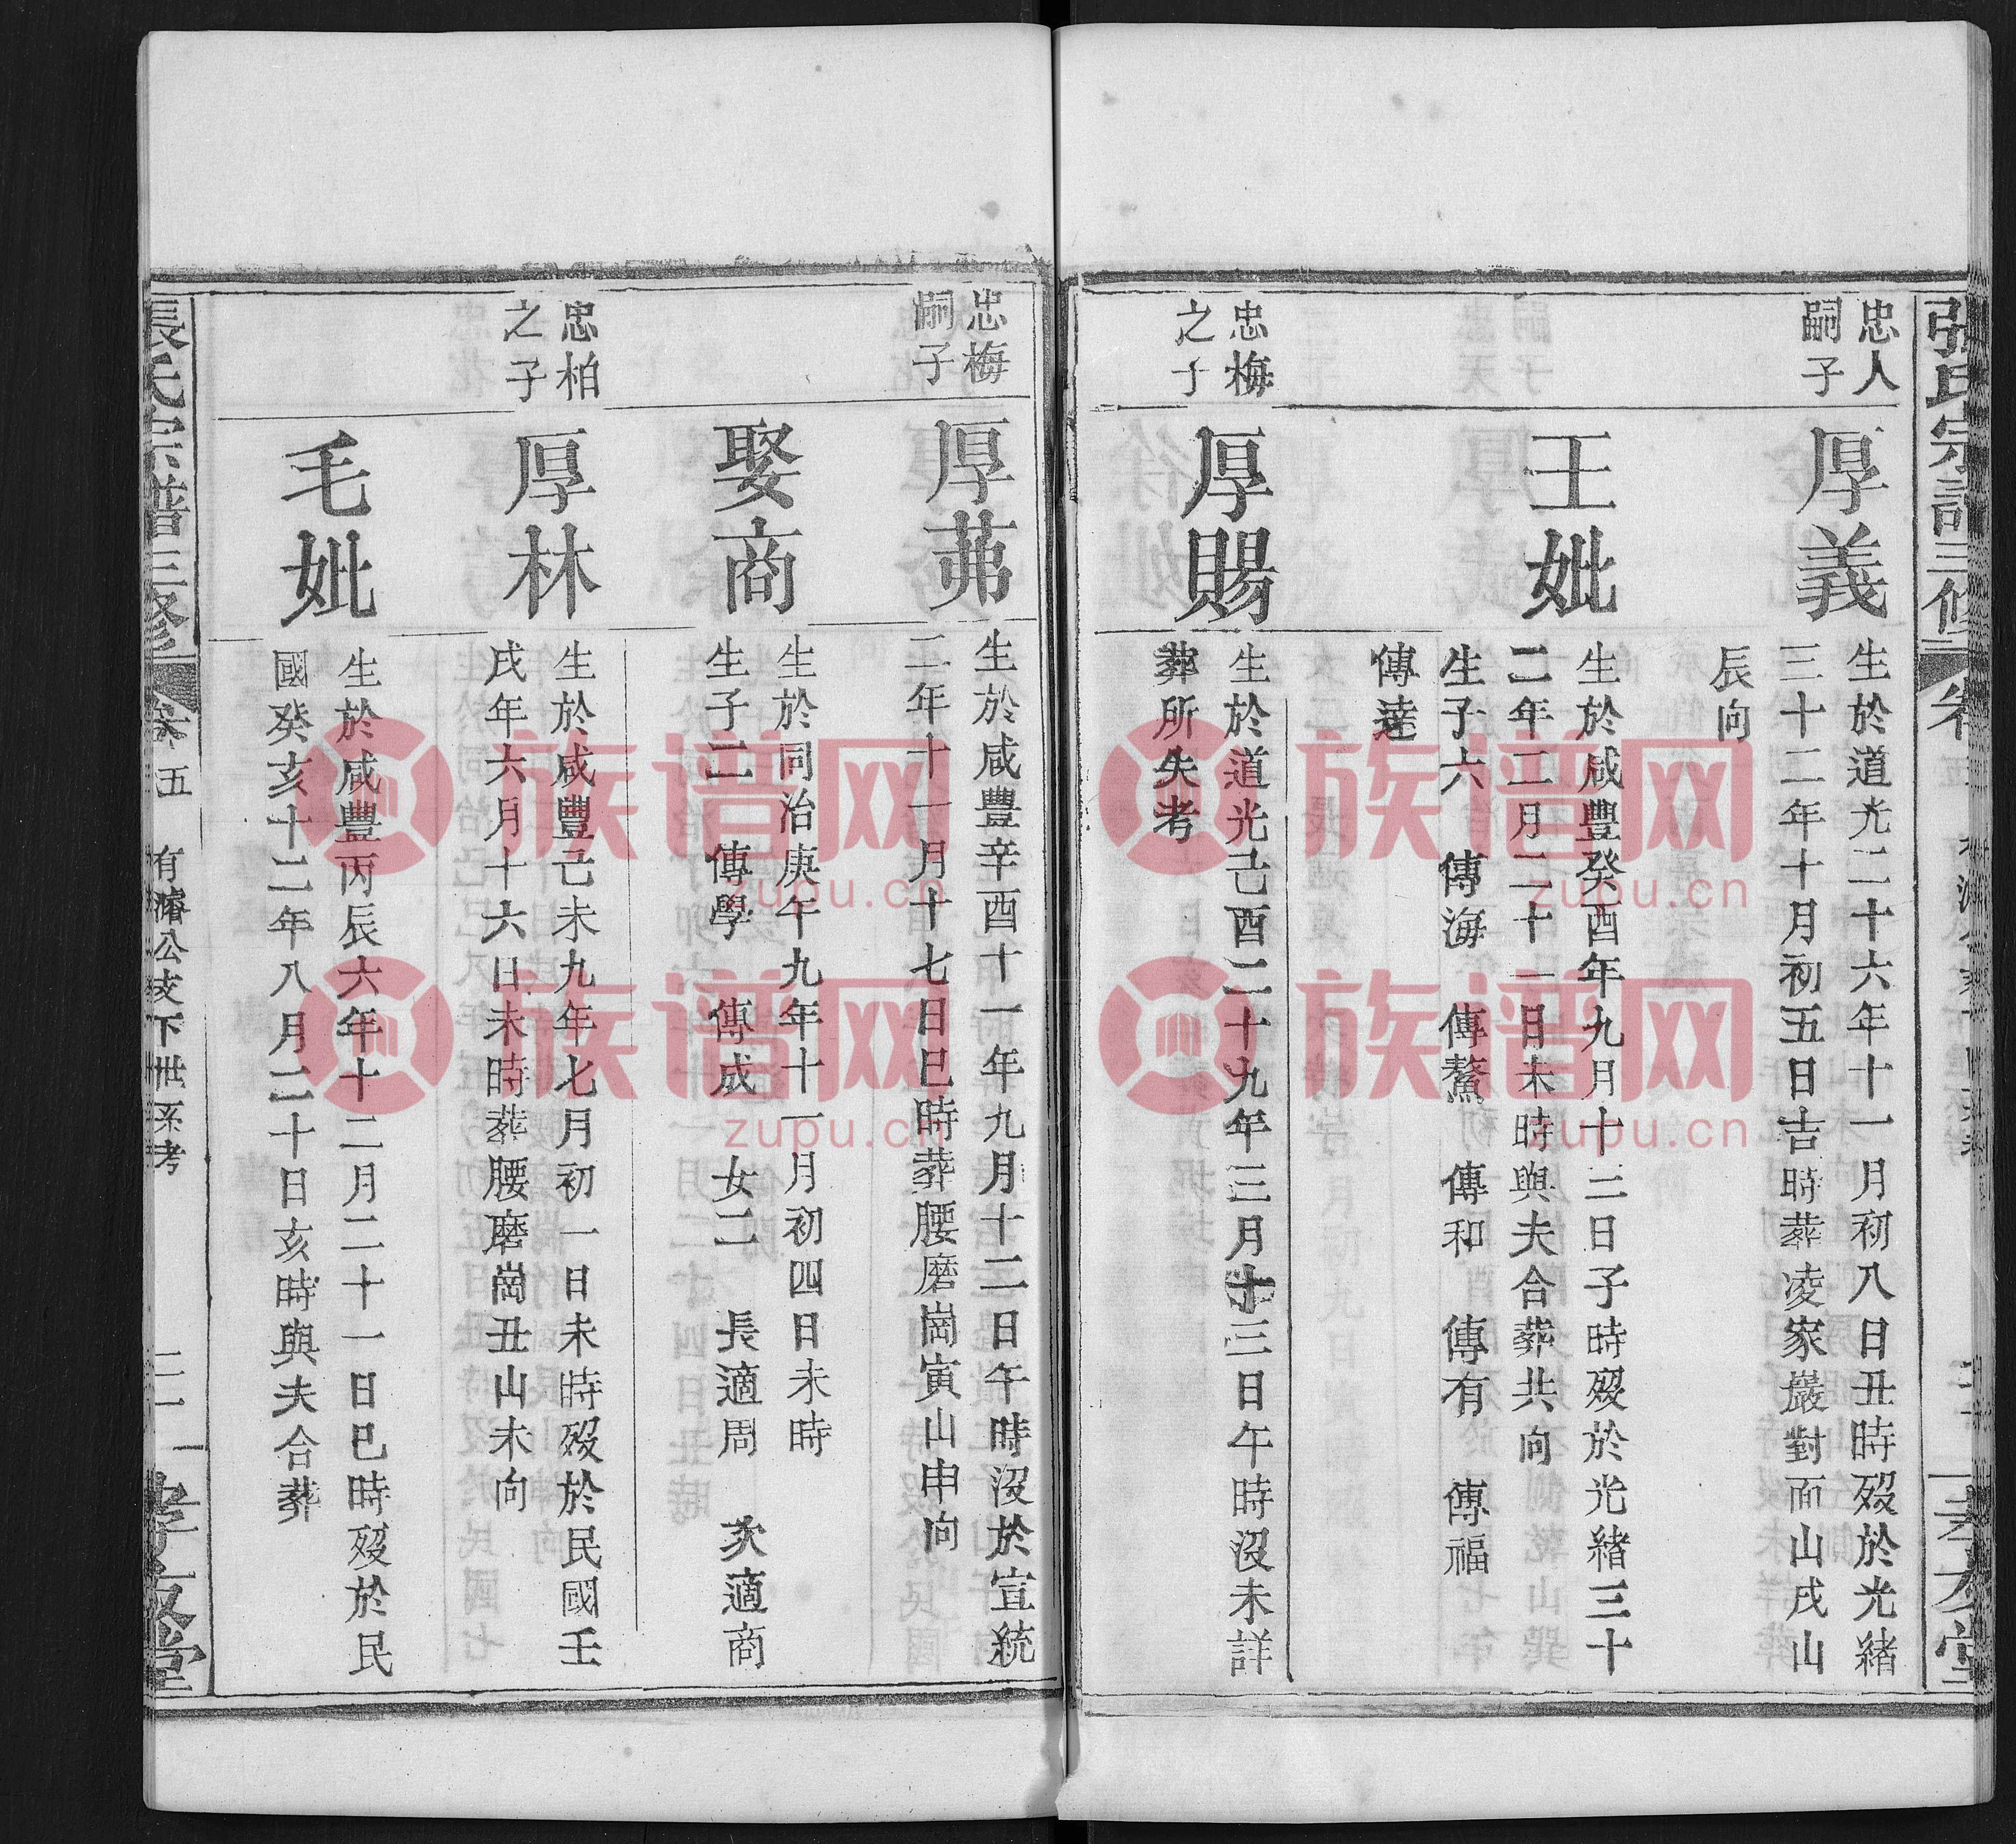 張氏宗譜三修
忠人
嗣子
厚義
生於道光二十六年十一月初八日丑時歿於光緒
三十二年十月初五日吉時葬凌家巖對面山戌山
辰向
王妣
生於咸豐癸酉年九月十三日子時歿於光緒三十
二年二月二十一日未時與夫合葬共向
生子六 傳海 傳鰲 傳和 傳有 傳福
傳達
忠梅
之子
厚賜
生於道光己酉二十九年三月十三日午時沒未詳
葬所失考
忠梅
嗣子
厚茀
生於咸豐辛酉十一年九月十二日午時沒於宣統
二年十一月十七日巳時葬腰磨崗寅山申向
娶商
生於同治庚午九年十一月初四日未時
生子二 傳學 傳成 女二 長適周 次適商
忠柏
之子
厚林
生於咸豐己未九年七月初一日未時歿於民國壬
戌年六月十六日未時葬腰磨崗丑山未向
毛妣
生於咸豐丙辰六年十二月二十一日巳時歿於民
國癸亥十二年八月二十日亥時與夫合葬
張氏宗譜三修
卷五
有濬公支下世系考
二十一
孝友堂
族谱网
zupu.cn
族谱网
zupu.cn
族谱网
zupu.cn
族谱网
zupu.cn